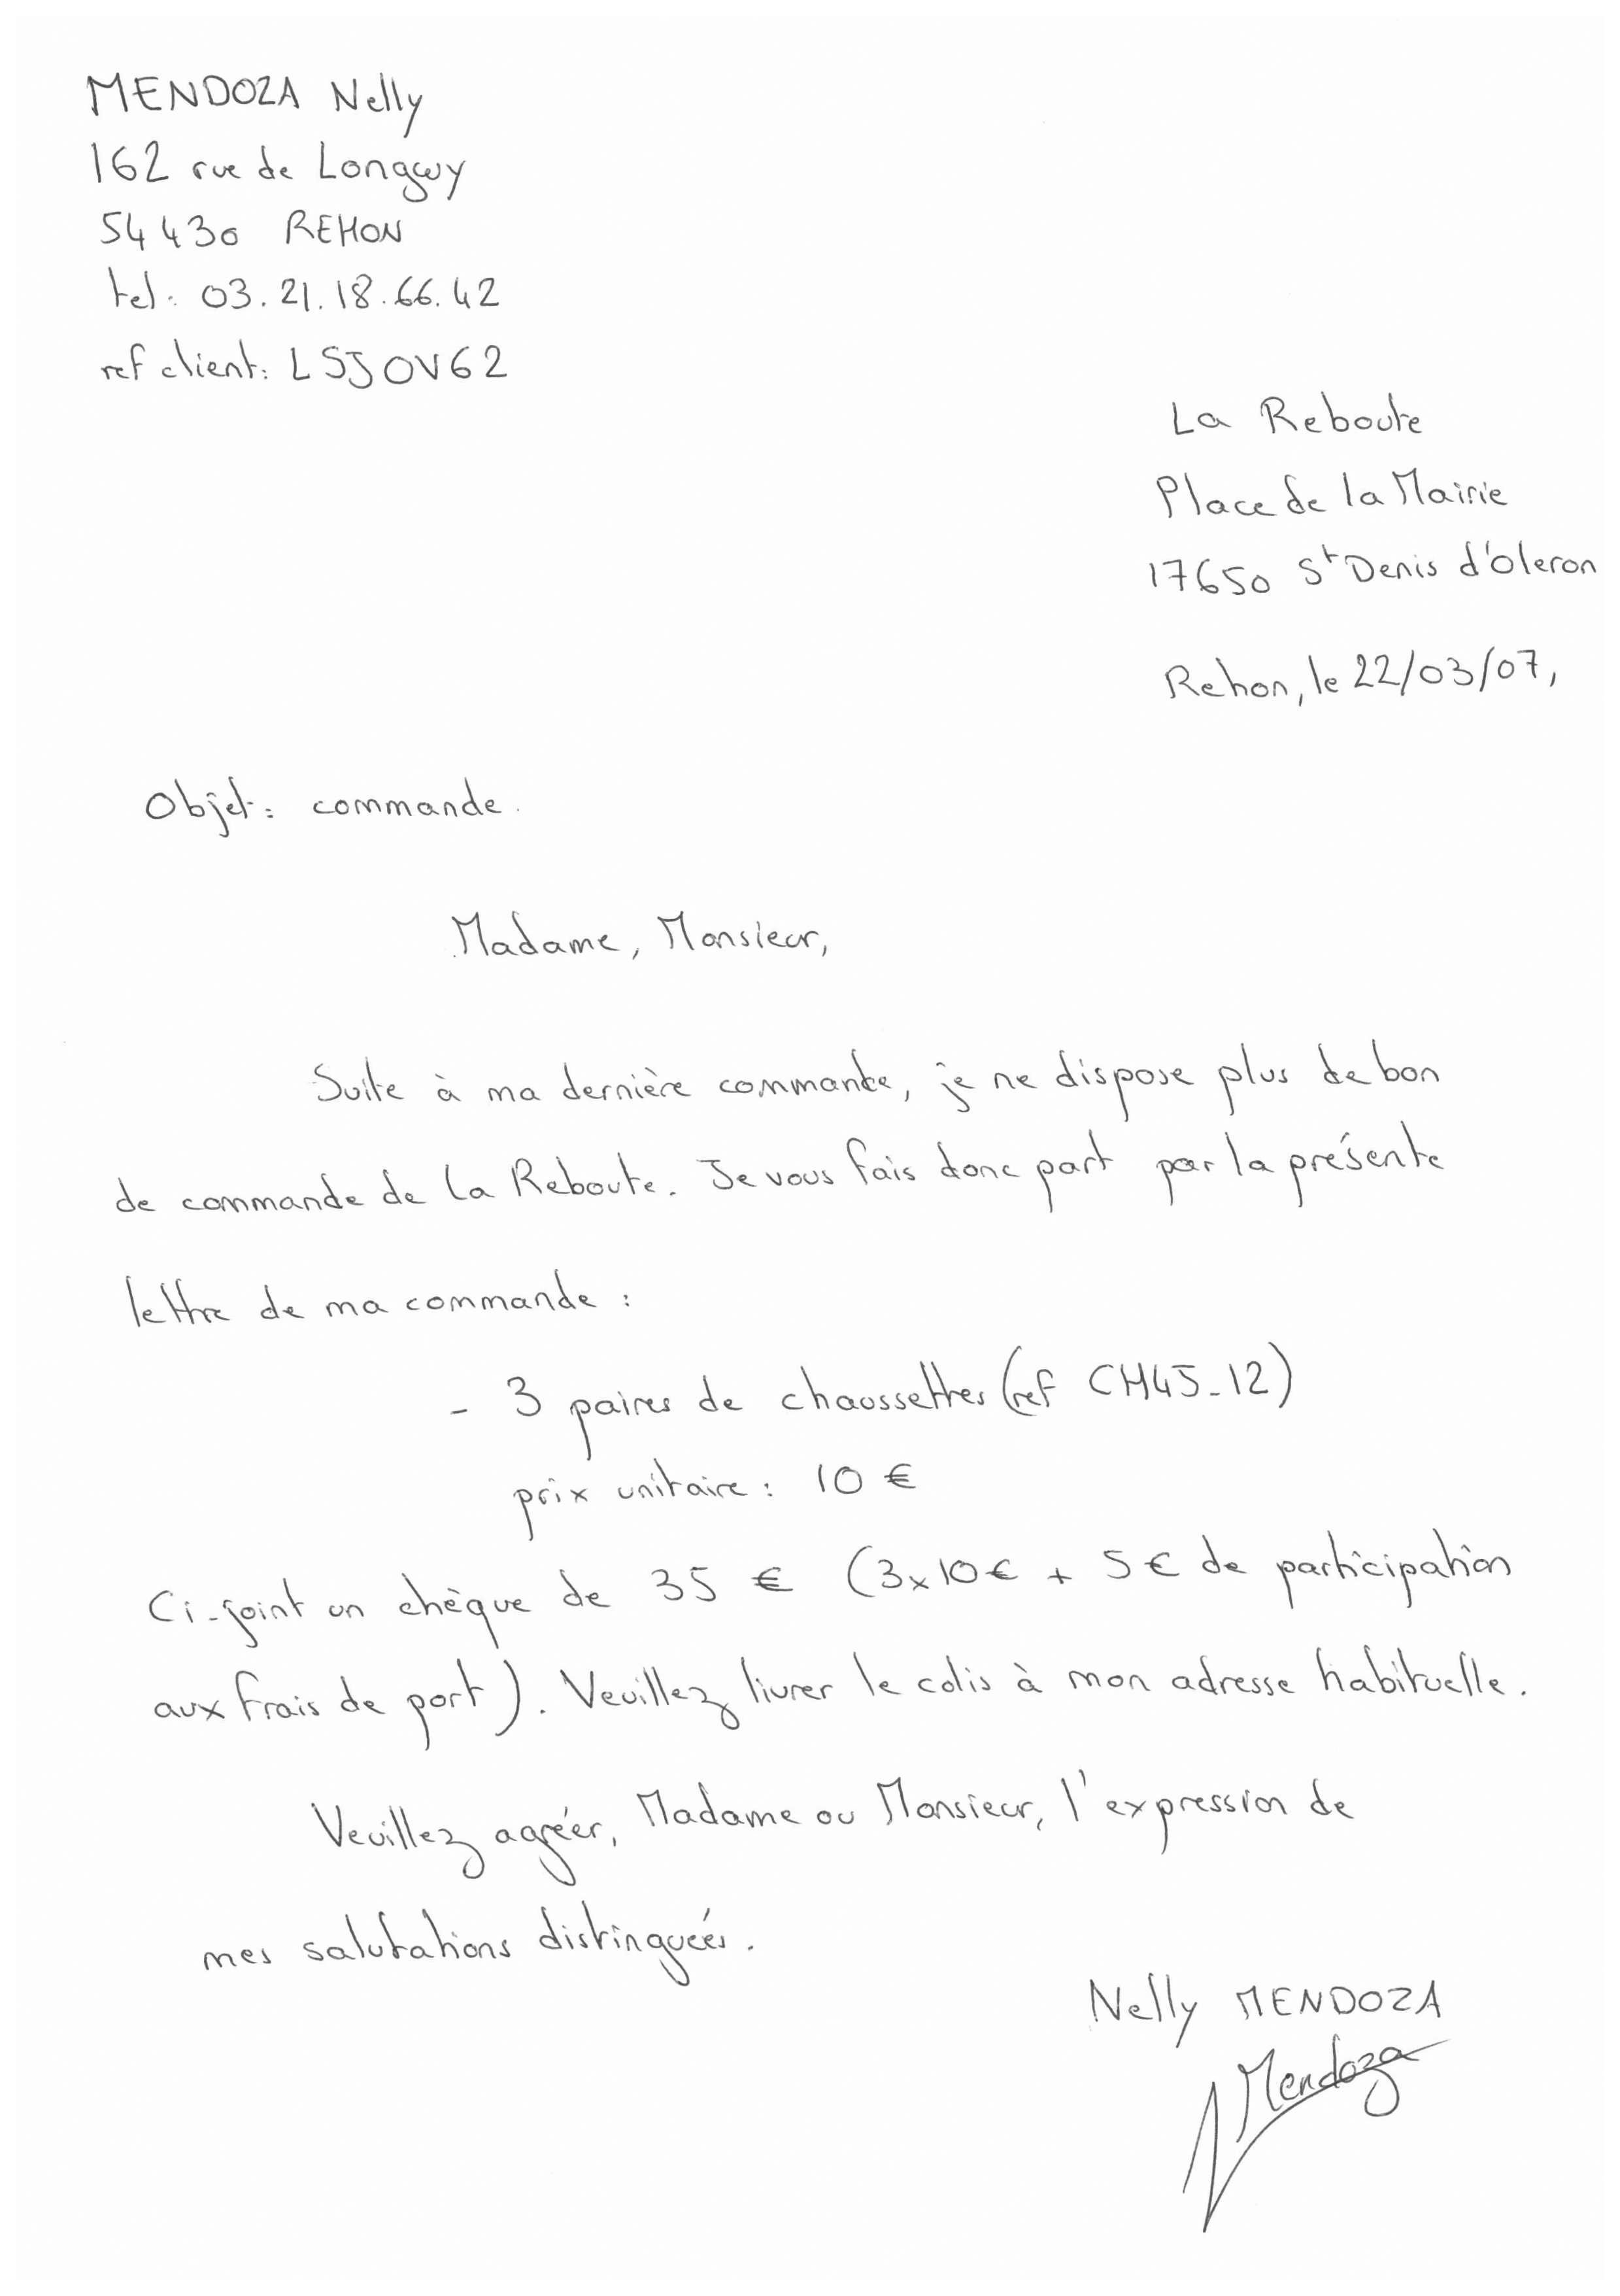 MENDOZA Nelly
162 rue de Longwy
54430 REHON
tel : 03.21.18.66.42
ref client : LSJOV62
La Reboute
Place de la Mairie
17650 St Denis d'Oleron
Rehon, le 22/03/07,
Objet : commande.
Madame, Monsieur,
Suite à ma dernière commande, je ne dispose plus de bon
de commande de La Reboute. Je vous fais donc part par la présente
lettre de ma commande :
- 3 paires de chaussettres (ref CH45-12)
prix unitaire : 10 €
Ci-joint un chèque de 35 € (3x10€ + 5€ de participation
aux frais de port). Veuillez livrer le colis à mon adresse habituelle.
Veuillez agréer, Madame ou Monsieur, l'expression de
mes salutations distinguées.
Nelly MENDOZA
Mendoza